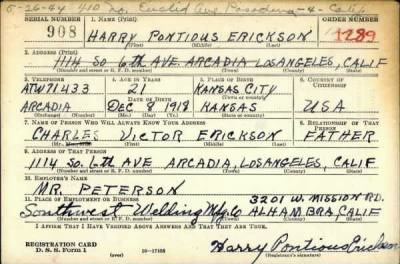 5-26-44 410 No. Euclid Ave Pasadena-4-Calif
SERIAL NUMBER 1. NAME (Print) ORDER NUMBER
908 HARRY PONTIOUS ERICKSON 1289
(First) (Middle) (Last)
2. ADDRESS (Print)
1114 SO. 6th AVE ARCADIA LOS ANGELES, CALIF
(Number and street or R. F. D. number) (Town) (County) (State)
3. TELEPHONE 4. AGE IN YEARS 5. PLACE OF BIRTH 6. COUNTRY OF CITIZENSHIP
ATW71433 21 KANSAS CITY
DATE OF BIRTH
ARCADIA DEC 8 1918 KANSAS USA
(Exchange) (Number) (Mo.) (Day) (Yr.) (State or county)
7. NAME OF PERSON WHO WILL ALWAYS KNOW YOUR ADDRESS 8. RELATIONSHIP OF THAT PERSON
CHARLES VICTOR ERICKSON FATHER
(First) (Middle) (Last)
9. ADDRESS OF THAT PERSON
1114 SO. 6th AVE ARCADIA, LOS ANGELES, CALIF
(Number and street or R. F. D. number) (Town) (County) (State)
10. EMPLOYER'S NAME
MR. PETERSON
11. PLACE OF EMPLOYMENT OR BUSINESS 3201 W. MISSION RD.
Southwest Welding Mfg Co ALHAMBRA, CALIF
(Number and street or R. F. D. number) (Town) (County) (State)
I AFFIRM THAT I HAVE VERIFIED ABOVE ANSWERS AND THAT THEY ARE TRUE.
REGISTRATION CARD
D. S. S. Form 1 16-17105 Harry Pontious Erickson
(Registrant's signature)